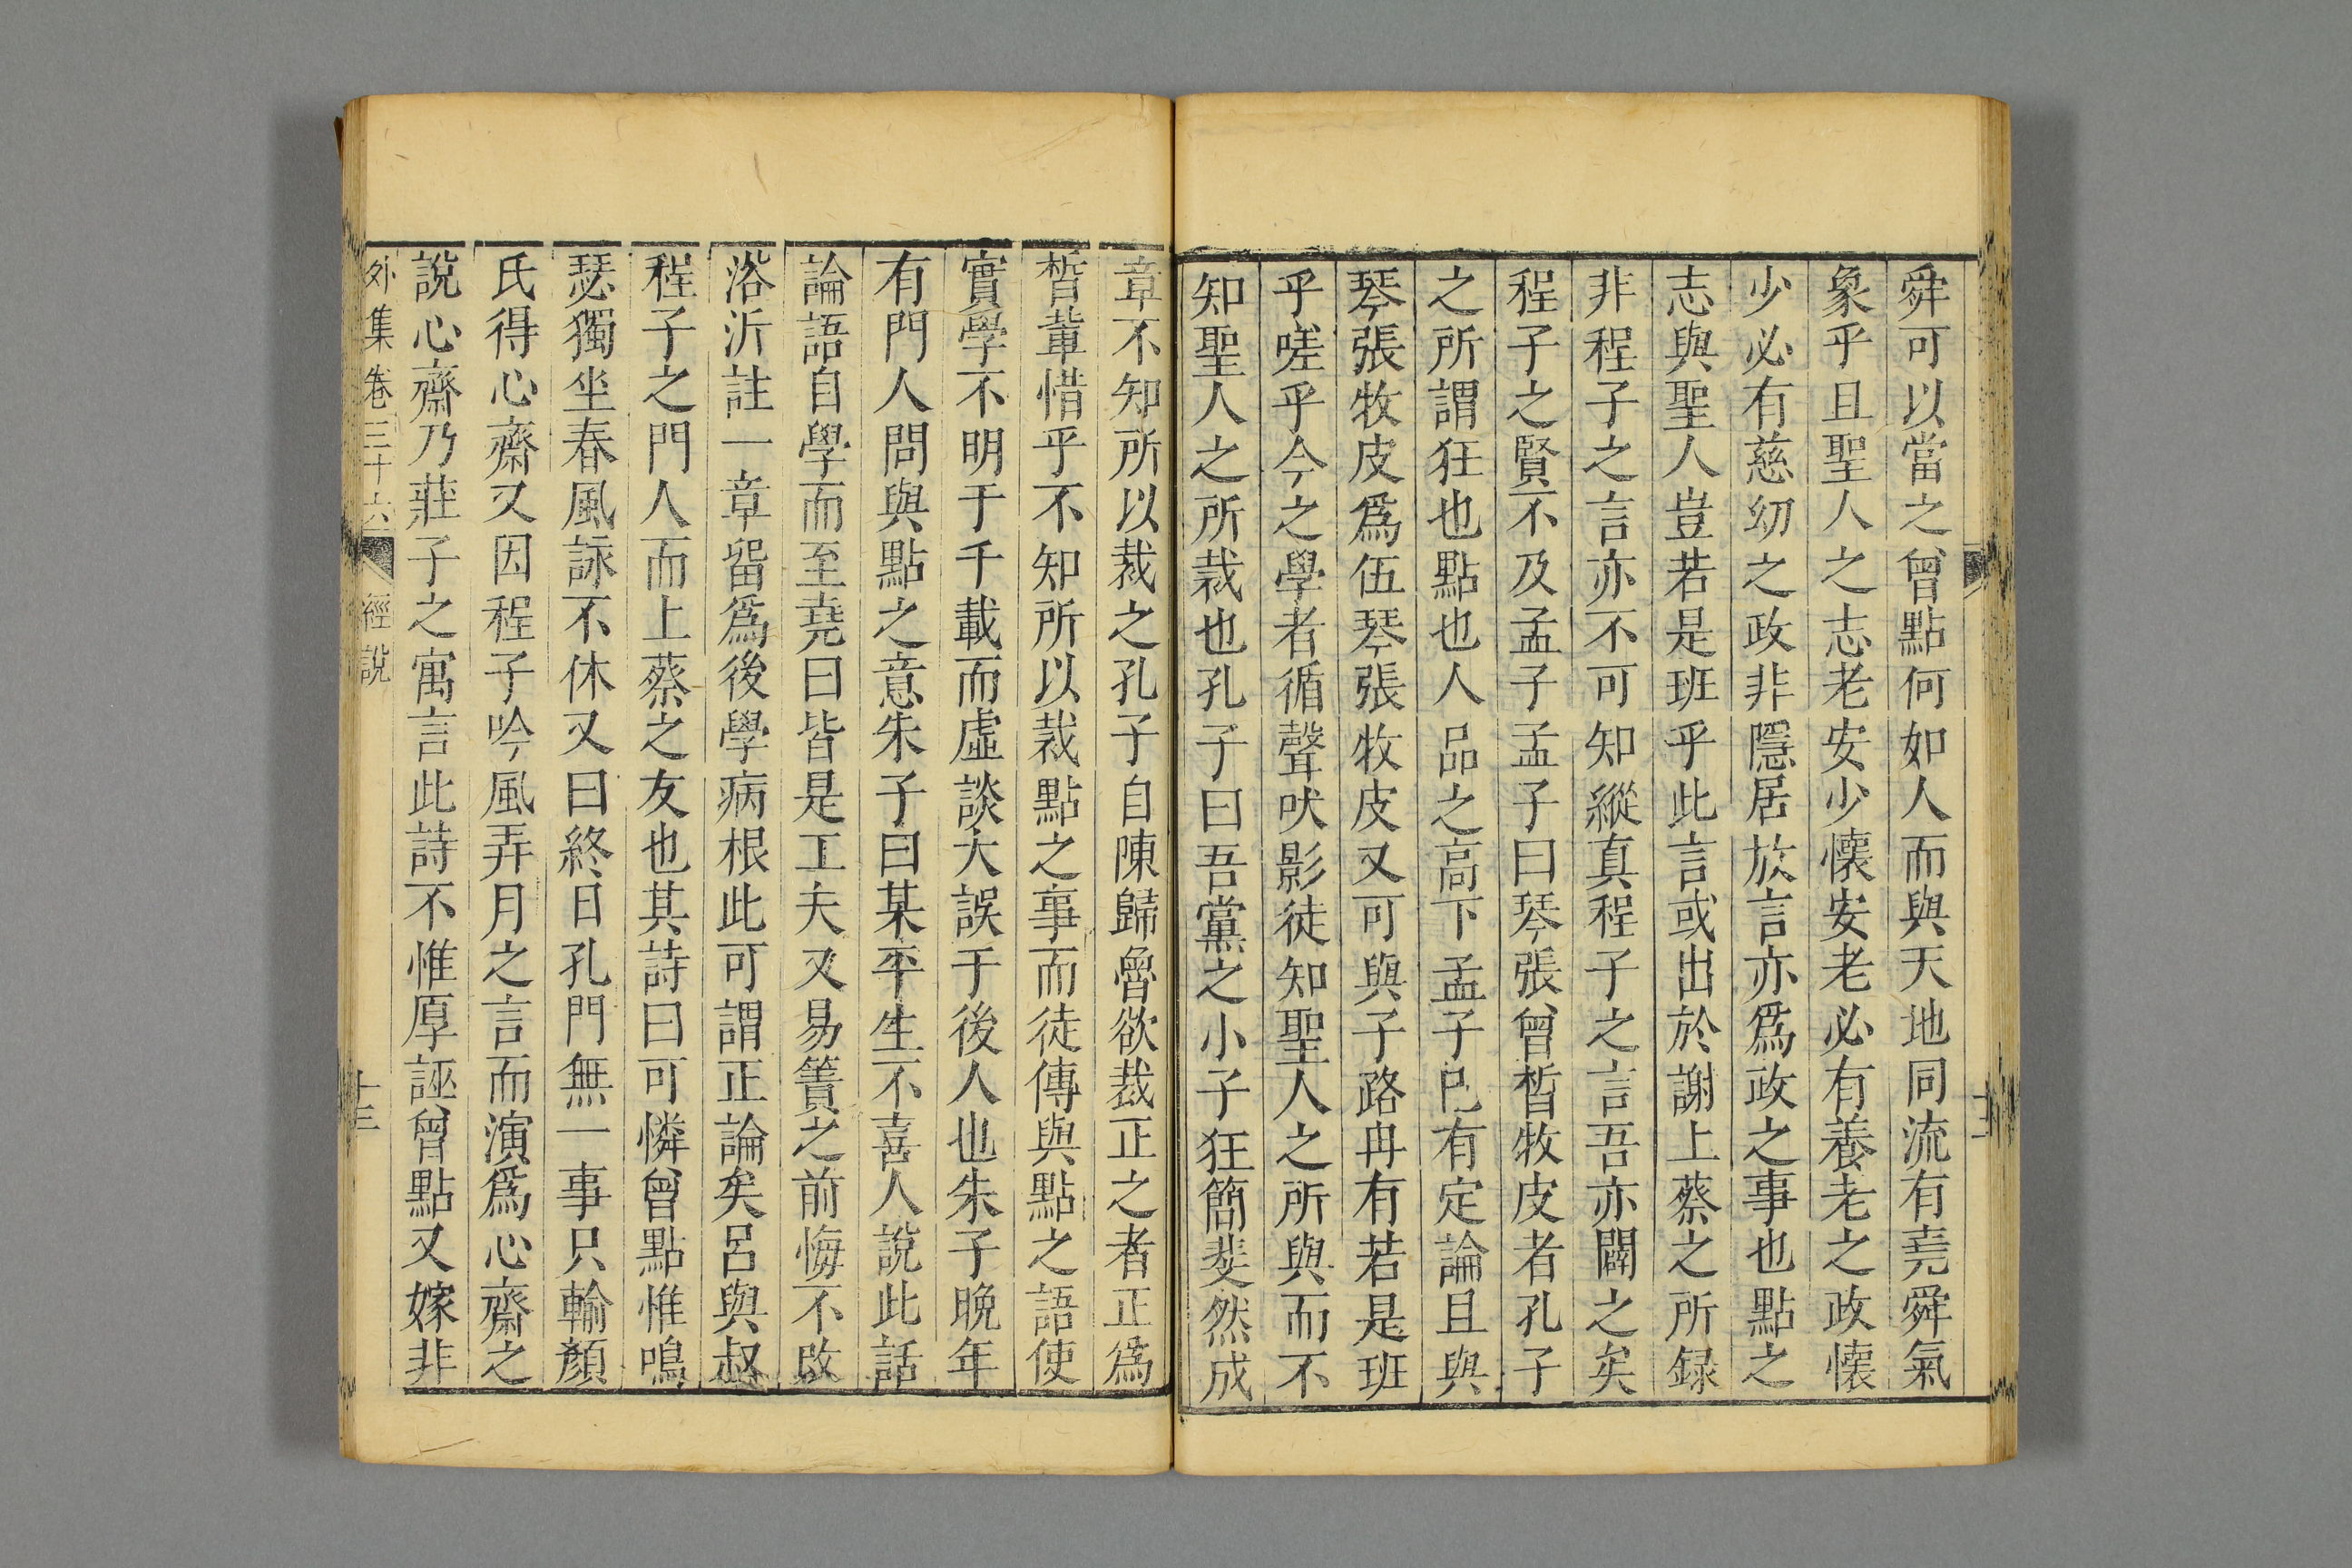 舜可以當之曾點何如人而與天地同流有堯舜氣
象乎且聖人之志老安少懷安老必有養老之政懷
少必有慈幼之政非隱居放言亦爲政之事也點之
志與聖人豈若是班乎此言或出於謝上蔡之所録
非程子之言亦不可知縱真程子之言吾亦闢之矣
程子之賢不及孟子孟子曰琴張曾皙牧皮者孔子
之所謂狂也點也人品之高下孟子已有定論且與
琴張牧皮爲伍琴張牧皮又可與子路冉有若是班
乎嗟乎今之學者循聲吠影徒知聖人之所與而不
知聖人之所裁也孔子曰吾黨之小子狂簡斐然成
章不知所以裁之孔子自陳歸魯欲裁正之者正爲
皙輩惜乎不知所以裁點之事而徒傳與點之語使
實學不明于千載而虛談大誤于後人也朱子晚年
有門人問與點之意朱子曰某平生不喜人說此話
論語自學而至堯曰皆是工夫又易簀之前悔不改
浴沂註一章留爲後學病根此可謂正論矣呂與叔
程子之門人而上蔡之友也其詩曰可憐曾點惟鳴
瑟獨坐春風詠不休又曰終日孔門無一事只輸顏
氏得心齋又因程子吟風弄月之言而演爲心齋之
說心齋乃莊子之寓言此詩不惟厚誣曾點又嫁非
外集卷三十六 經說 十三